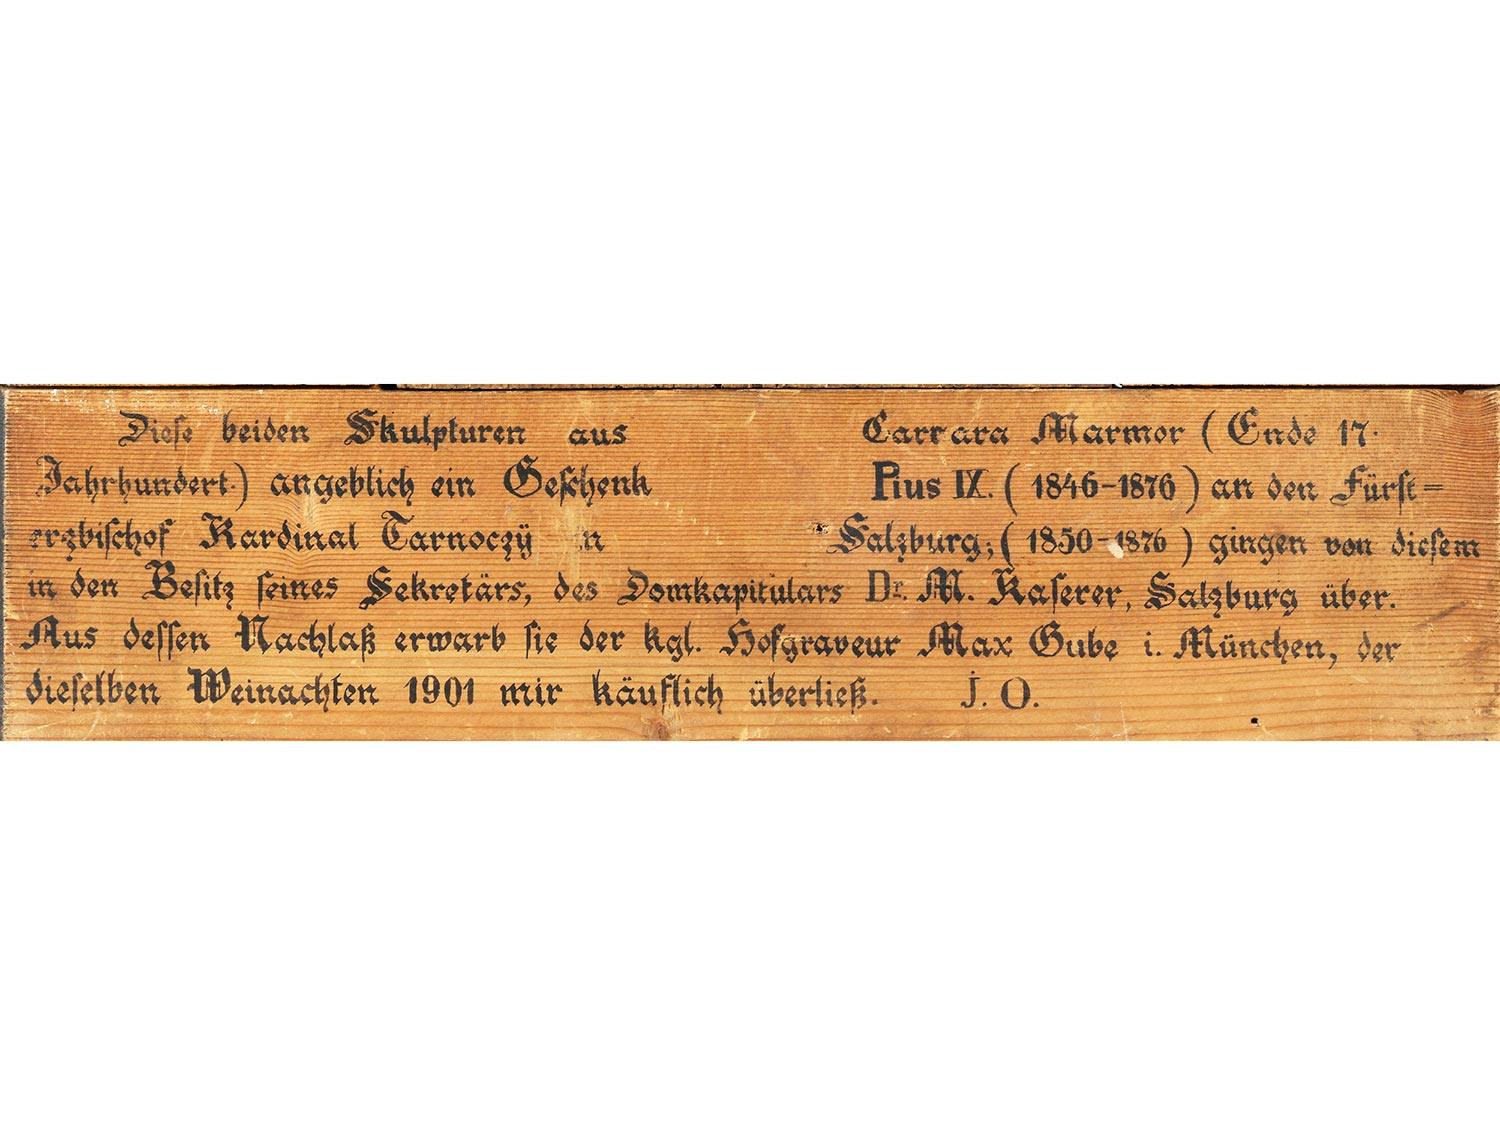 Diese beiden Skulpturen aus Carrara Marmor (Ende 17.
Jahrhundert.) angeblich ein Geschenk Pius IX. (1846-1876) an den Fürst-
erzbischof Kardinal Tarnoczÿ in Salzburg; (1850-1876) gingen von diesem
in den Besitz seines Sekretärs, des Domkapitulars Dr. M. Kaserer, Salzburg über.
Aus dessen Nachlaß erwarb sie der kgl. Hofgraveur Max Gube i. München, der
dieselben Weinachten 1901 mir käuflich überließ. J. O.